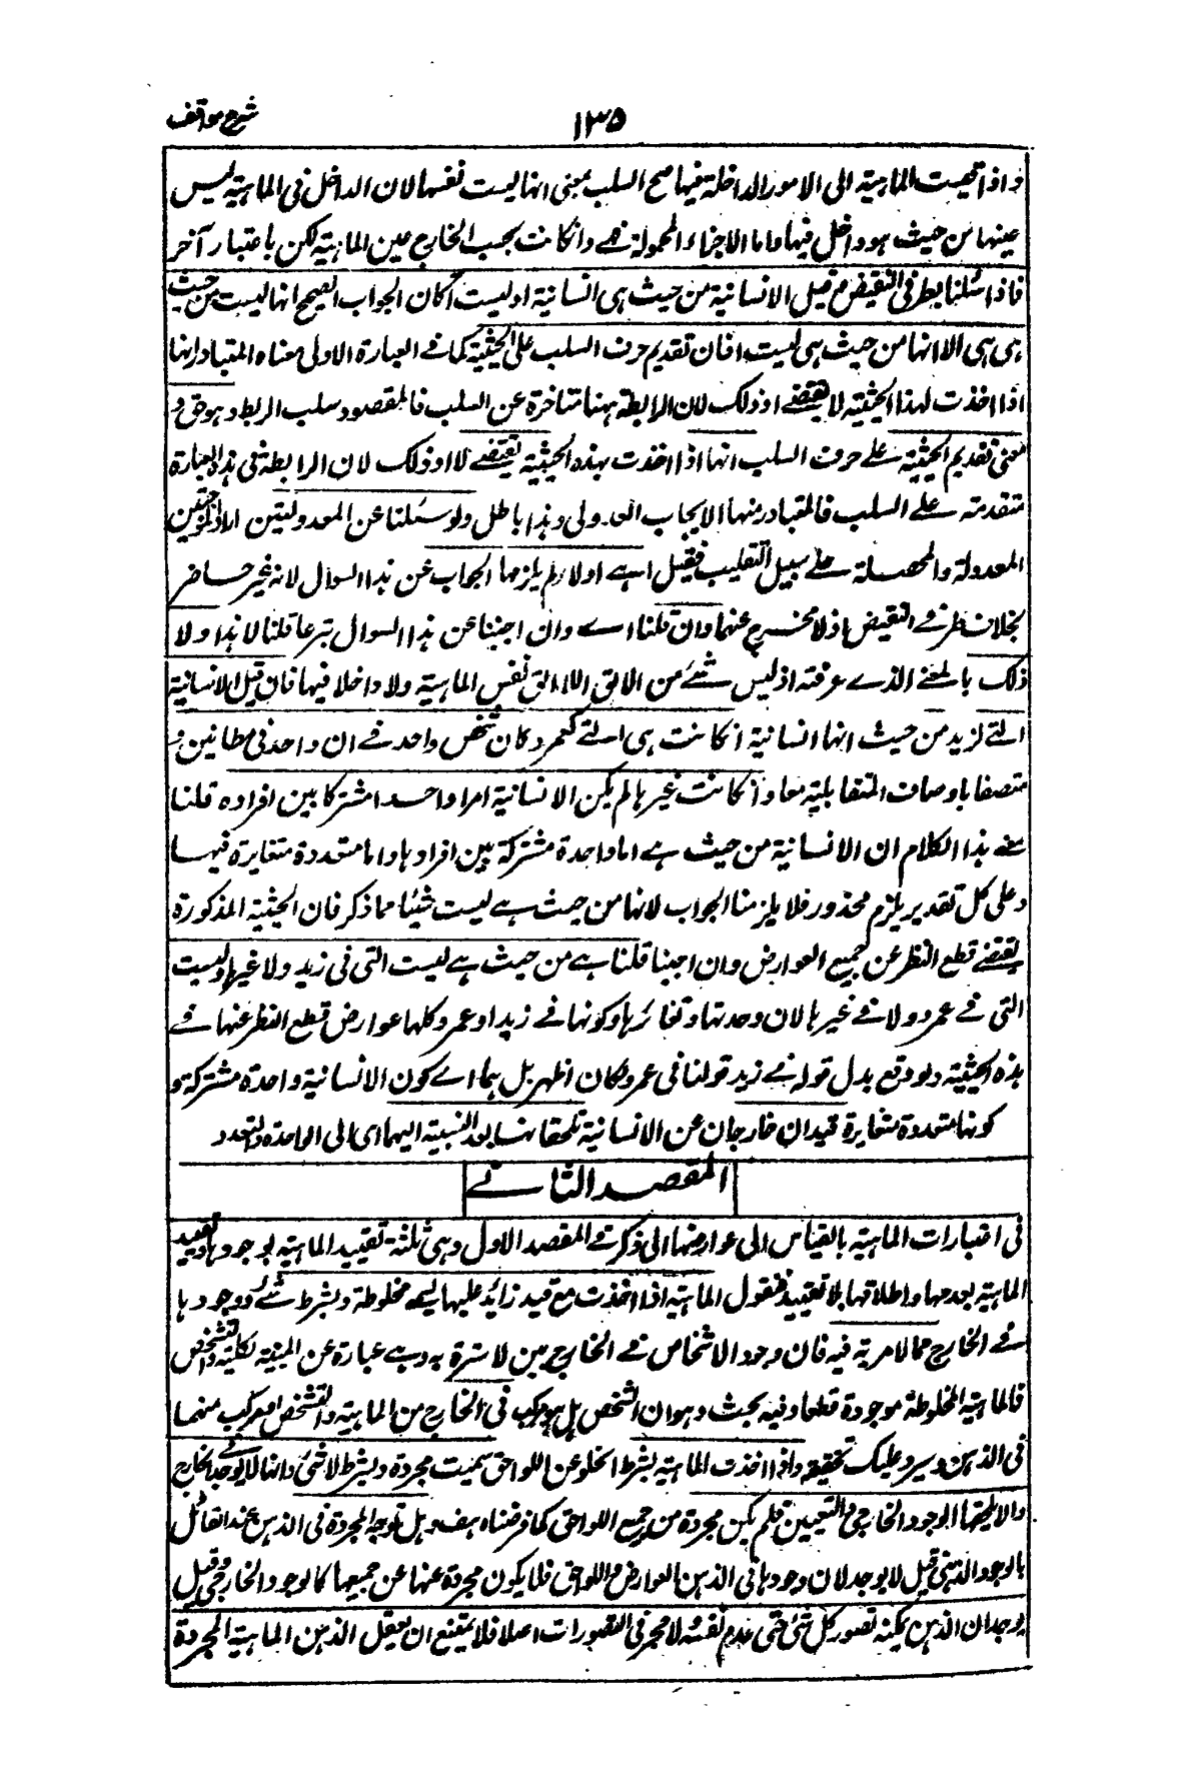 شرح مواقف
١٣٥
واذا قيست الماهية الى الامور الداخلة فيها صح السلب بمعنى انها ليست نفسها لان الداخل فى الماهية ليس
عينها من حيث هو داخل فيها واما الاجزاء المحمولة فهے وانكانت بحسب الخارج عين الماهية لكن باعتبار آخر
فاذا سئلنا بطرفى النقيض مع قيل الانسانية من حيث هى انسانية او ليست ا كان الجواب الصحيح انها ليست من حيث
هى هى ا لا انها من حيث هى ليست ا فان تقديم حرف السلب على الحيثية كما فے العبارة الاولى معناه المتبادر انها
اذا اخذت بهذا الحيثية لا يقتضے ا وذلك لان الرابطة ههنا متاخرة عن السلب فالمقصود سلب الربط وهو حق و
معنى تقديم الحيثية علے حرف السلب انها اذا اخذت بهذه الحيثية تقتضے لا ا وذلك لان الرابطة فى هذه العبارة
متقدمة علے السلب فالمتبادر منها الايجاب العدولى وهذا باطل ولو سئلنا عن المعدولتين اراد الموجبتين
المعدولة والمحصلة علے سبيل التغليب فقيل اهے ا ولا ا لم يلزمنا الجواب عن هذا السوال لانه غير حاصر
بخلاف طرفے النقيض اذ لا مخرج عنهما وان قلنا اے وان اجبنا عن هذا السوال تبرعا قلنا لا هذا ولا
ذلك بالمعنے الذے عرفته اذ ليس شئے من الالف اللاالف نفس الماهية ولا داخلا فيها فان قيل الانسانية
التے لزيد من حيث انها انسانية ان كانت هى التے لعمرو كان شخص واحد فے ان واحد فى مكانين و
متصفا باوصاف المتقابلة معا وان كانت غيرها لم يكن الانسانية امرا واحدا مشتركا بين افراده قلنا
معنے هذا الكلام ان الانسانية من حيث هے اما واحدة مشتركة بين افرادها واما متعددة متغايرة فيها
وعلى كل تقدير يلزم محذور فلا يلزمنا الجواب لانها من حيث هے ليست شيئا مما ذكر فان الحيثية المذكورة
يقتضے قطع النظر عن جميع العوارض وان اجبنا قلنا هے من حيث هے ليست التى فى زيد ولا غيرها وليست
التى فے عمرو ولا فے غيرها لان وحدتها وتغايرها وكونها فے زيد او عمرو كلها عوارض قطع النظر عنها فے
هذه الحيثية ولو وقع بدل قوله فے زيد قولنا فى عمرو لكان اظهر بل هما اے كون الانسانية واحدة مشتركة و
كونها متعددة متغايرة قيدان خارجان عن الانسانية تلحقانها بعد النسبة اليهما اى الى الوحدة والتعدد
المقصد الثانے
فى اعتبارات الماهية بالقياس الى عوارضها التى ذكرت فے المقصد الاول وهى ثلثة تقييد الماهية بوجودها وتقييد
الماهية بعدمها واطلاقها بلا تقييد فنقول الماهية اذا اخذت مع قيد زائد عليها يسمے مخلوطة وبشرط شئے ووجودها
فے الخارج مما لا مرية فيه فان وجود الاشخاص فے الخارج بين لا سترة به وهے عبارة عن المهية الكلية والتشخص
فالماهية المخلوطة موجودة قطعا وفيه بحث وهو ان الشخص هل هو مركب فى الخارج من الماهية والتشخص او مركب منهما
فى الذهن وسيرد عليك تحقيقه واذا اخذت الماهية بشرط الخلو عن اللواحق سميت مجردة وبشرط لا شئ وانها لا يوجد فے الخارج
والا يلحقها الوجود الخارجى والتعيين فلم يكن مجردة من جميع اللواحق كما فرضناه هف وهل توجد المجردة فى الذهن عند القائل
بالوجود الذهنى قيل لا يوجد لان وجودها فى الذهن من العوارض واللواحق فلا يكون مجردة عنها عن جميعها كالوجود الخارجى وقيل
يوجد لان الذهن يمكنه تصور كل شئ حتى عدم نفسه لا حجر فى التصورات اصلا فلا يمتنع ان يعقل الذهن الماهية المجردة